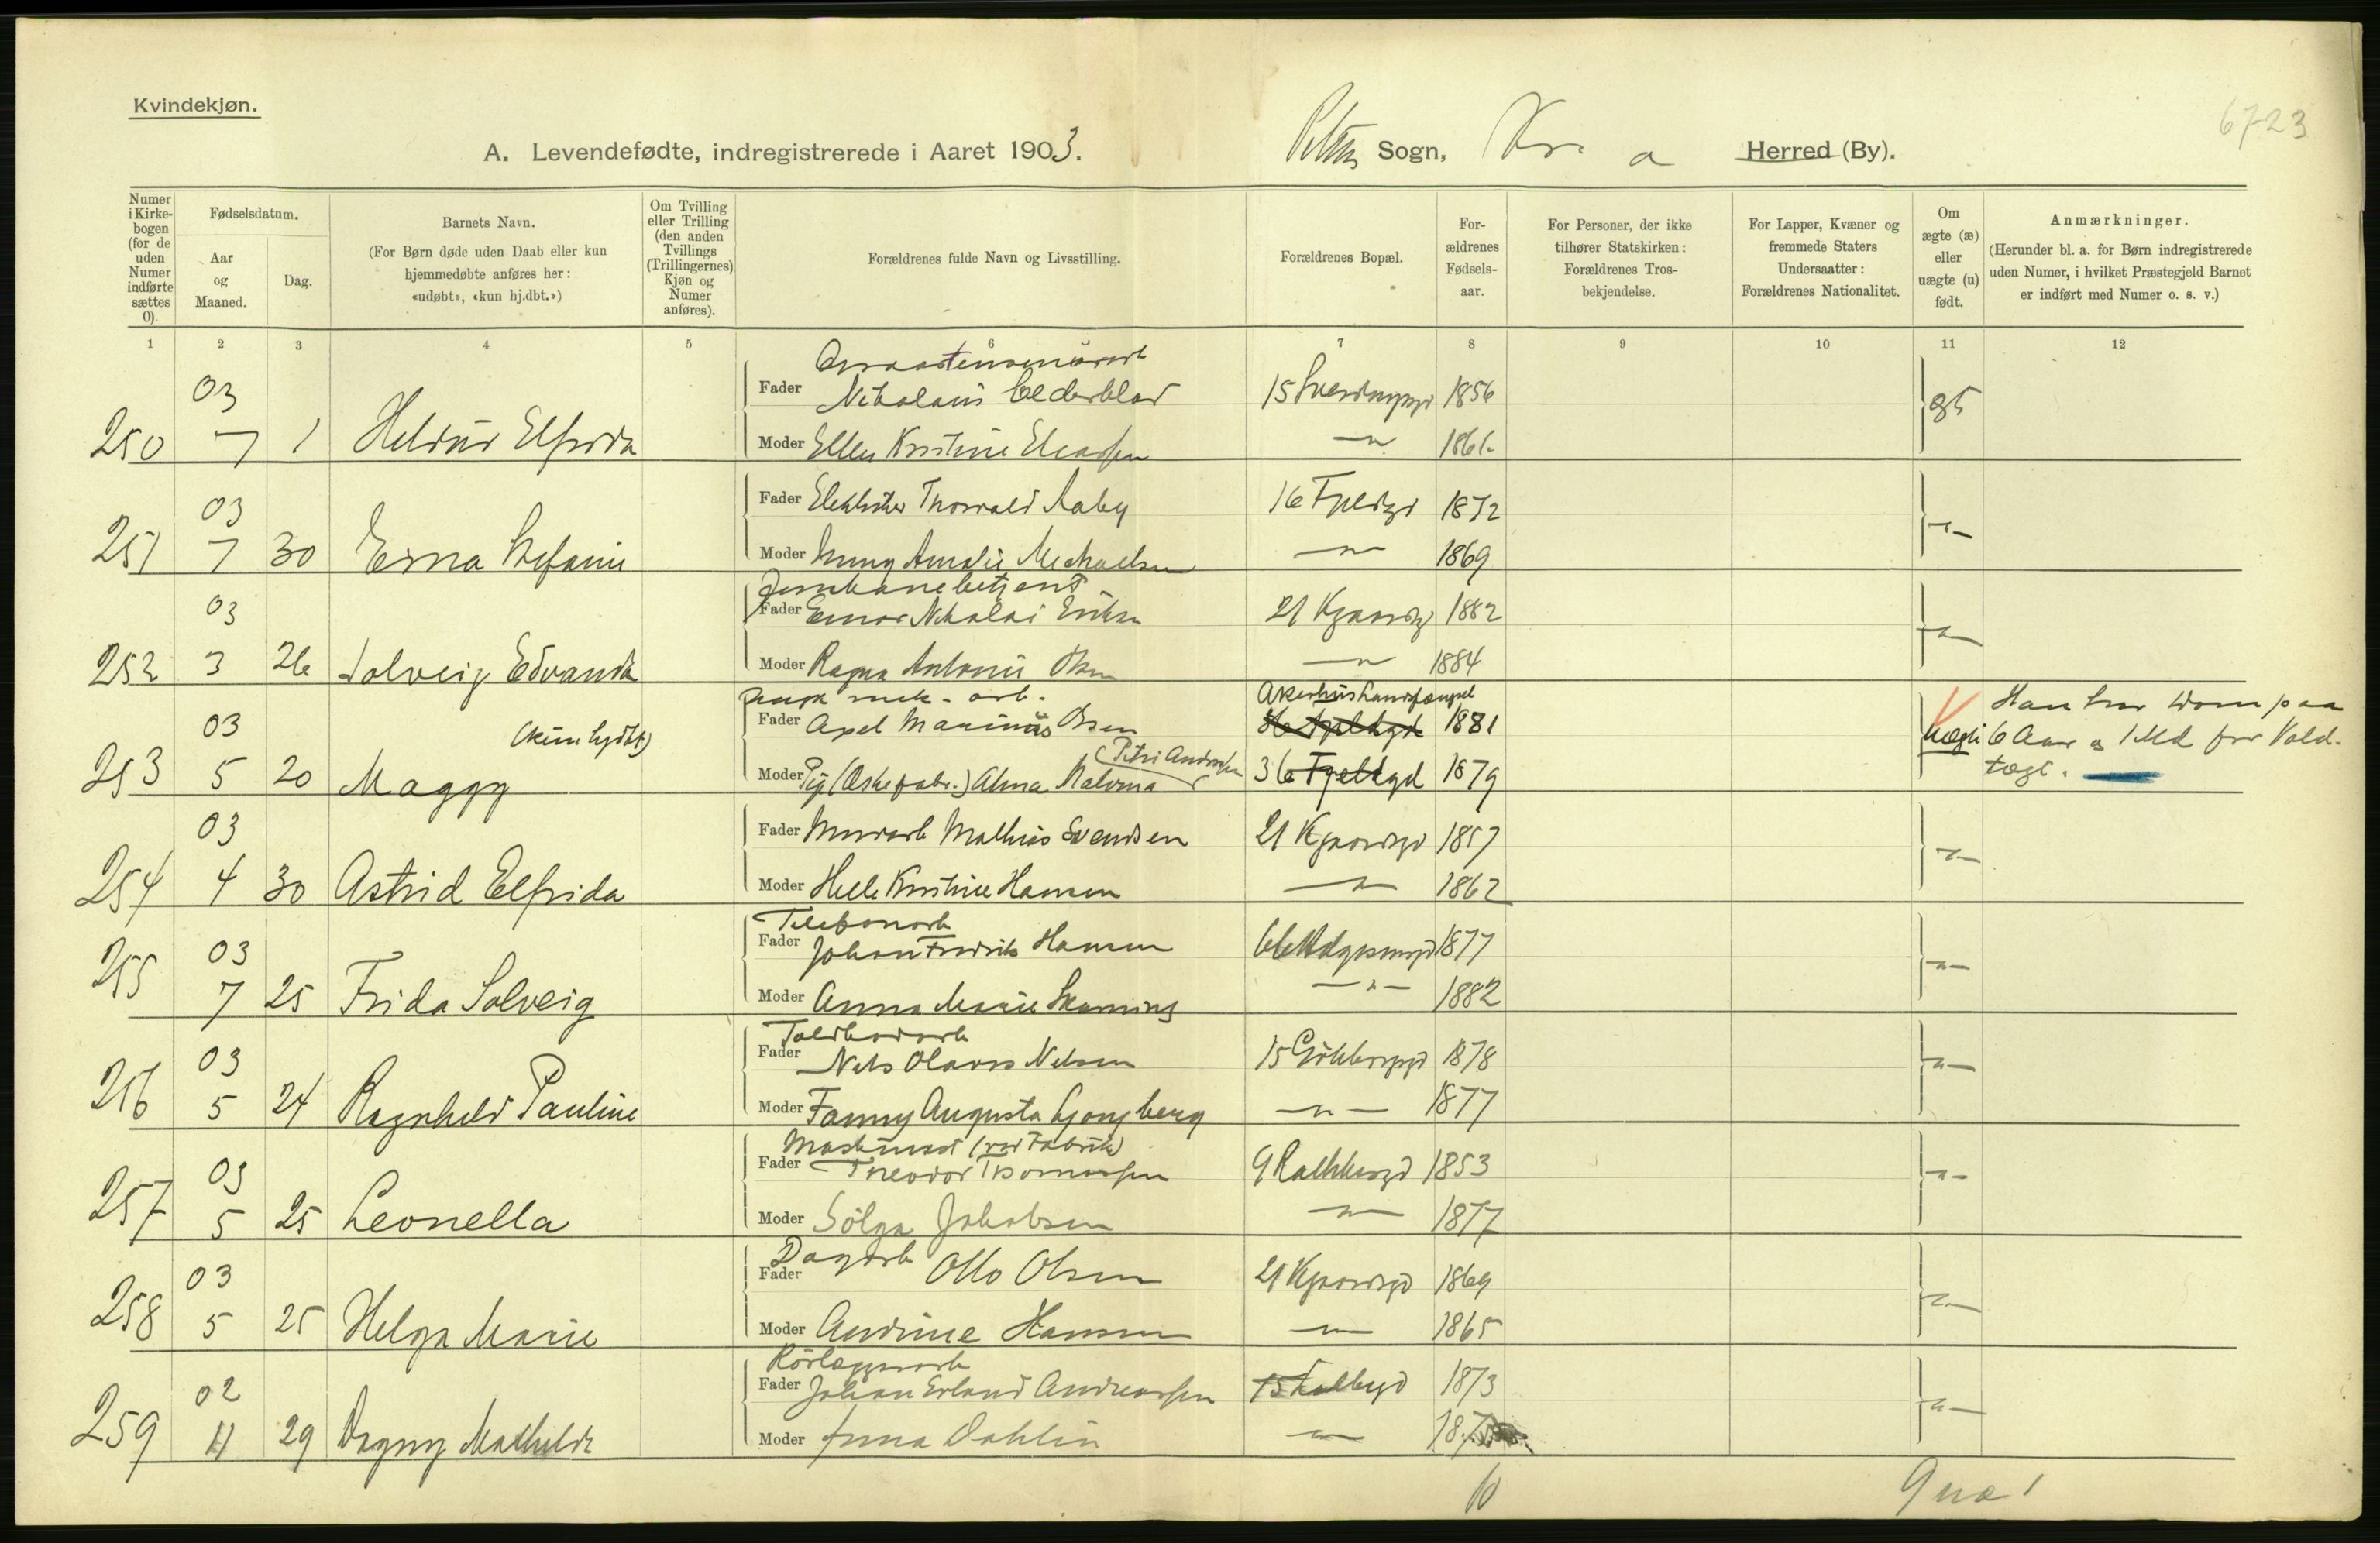 Kvindekjøn.
6723
A. Levendefødte, indregistrerede i Aaret 1903. Petrus Sogn, Kr. a Herred (By).
Numer i Kirkebogen (for de uden Numer indførte sættes 0).
Fødselsdatum.
Aar og Maaned.
Dag.
Barnets Navn.
(For Børn døde uden Daab eller kun hjemmedøbte anføres her: «udøbt», «kun hj.dbt.»)
Om Tvilling eller Trilling (den anden Tvillings (Trillingernes) Kjøn og Numer anføres).
Forældrenes fulde Navn og Livsstilling.
Forældrenes Bopæl.
Forældrenes Fødselsaar.
For Personer, der ikke tilhører Statskirken: Forældrenes Trosbekjendelse.
For Lapper, Kvæner og fremmede Staters Undersaatter: Forældrenes Nationalitet.
Om ægte (æ) eller uægte (u) født.
Anmærkninger.
(Herunder bl. a. for Børn indregistrerede uden Numer, i hvilket Præstegjeld Barnet er indført med Numer o. s. v.)
1 2 3 4 5 6 7 8 9 10 11 12
250 03 7 1 Heldur Elfrida
Fader Nikolaus Cederblad 15 1856
Moder Ellen Kristine Eleasen — " — 1861
251 03 7 30 Erna Stefanie
Fader Elektriker Thorvald Aaby 16 Fjeldgd 1872
Moder Amalie Michaelsen — " — 1869
252 03 3 26 Solveig Edvarda
Jernbanebetjent
Fader Einar Nikolai Eriksen 21 1882
Moder Ragna Antonie Olsen — " — 1884
253 03 5 20 Maggy (kun hjdbt)
mek. arb. Akerhus Landsfængsel
Fader Axel Marinius Olsen 36 Fjeldgd 1881
Moder Pige (Æskefabr.) Alma Malvina (Petri Andersen 36 Fjeldgd 1879
uægte Han har Dom paa 6 Aar og 1 Md for Voldtægt.
254 03 4 30 Astrid Elfrida
Fader Murarb Mathias Svendsen 21 1857
Moder Helle Kristine Hansen — " — 1862
255 03 7 25 Frida Solveig
Telefonarb
Fader Johan Fredrik Hansen 1877
Moder Anna Marie — " — 1882
256 03 5 24 Ragnhild Pauline
Toldbodarb
Fader Nils Olavus Nilsen 15 Gøteborggd 1878
Moder Fanny Augusta Ljongberg — " — 1877
257 03 5 25 Leonella
Maskinist (ved Fabrik)
Fader Theodor Thomassen 9 Rathkesgd 1853
Moder Sølga Jakobsen — " — 1877
258 03 5 25 Helga Marie
Dagarb
Fader Otto Olsen 21 1869
Moder Andrine Hansen — " — 1865
259 02 11 29 Dagny Mathilde
Rørlæggerarb
Fader Johan Erland Andreassen 15 1873
Moder Anna Dahlin — " — 187
10
9 u 1